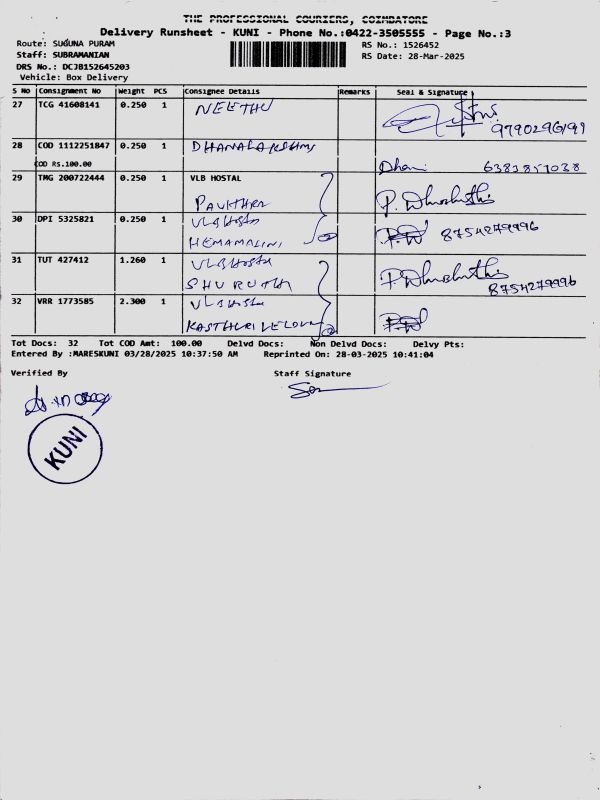 THE PROFESSIONAL COURIERS, COIMBATORE
Delivery Runsheet - KUNI - Phone No.:0422-3505555 - Page No.:3
Route: SUGUNA PURAM RS No.: 1526452
Staff: SUBRAMANIAN RS Date: 28-Mar-2025
DRS No.: DCJB152645203
Vehicle: Box Delivery
S No Consignment No Weight PCS Consignee Details Remarks Seal & Signature
27 TCG 41608141 0.250 1 NEETHU
9790296191
28 COD 1112251847 0.250 1 DHANALAKSHMI
COD Rs.100.00 Dhani 6383851038
29 TMG 200722444 0.250 1 VLB HOSTAL
PAVITHRA P. Dharshithi
30 DPI 5325821 0.250 1 VLB Hosta
HEMAMALINI 8754279996
31 TUT 427412 1.260 1 VLB Hosta
SHURUTH P. Dharshithi
8754279996
32 VRR 1773585 2.300 1 VLB Hosta
KASTHURI VELOU
Tot Docs: 32 Tot COD Amt: 100.00 Delvd Docs: Non Delvd Docs: Delvy Pts:
Entered By :MARESKUNI 03/28/2025 10:37:50 AM Reprinted On: 28-03-2025 10:41:04
Verified By Staff Signature
KUNI